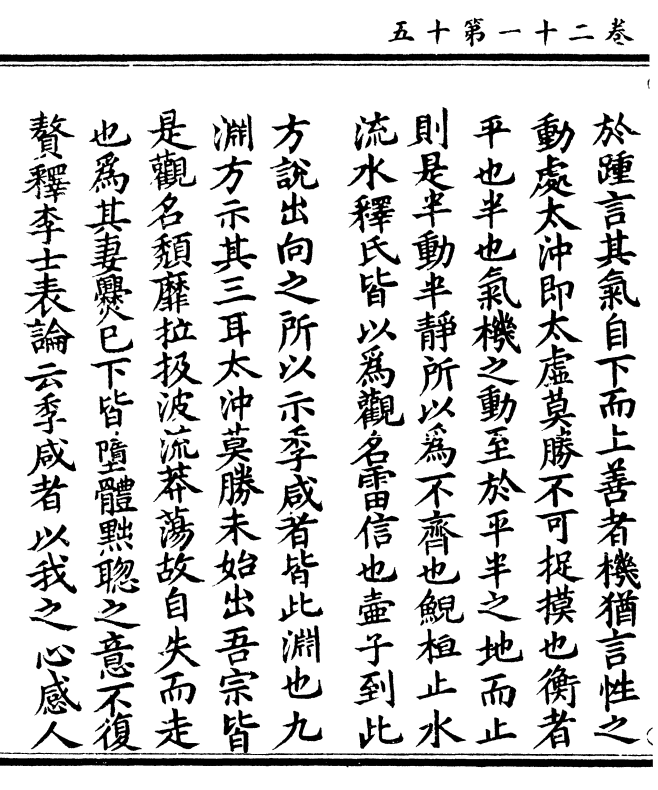 卷二十一第十五
於踵言其氣自下而上善者機猶言性之
動處太沖即太虛莫勝不可捉摸也衡者
平也半也氣機之動至於平半之地而止
則是半動半靜所以爲不齊也鯢桓止水
流水釋氏皆以爲觀名雷信也壷子到此
方說出向之所以示季咸者皆此淵也九
淵方示其三耳太沖莫勝未始出吾宗皆
是觀名頽靡拉扱波流莽蕩故自失而走
也爲其妻爨巳下皆墮體黜聦之意不復
贅釋李士表論云季咸者以我之心感人